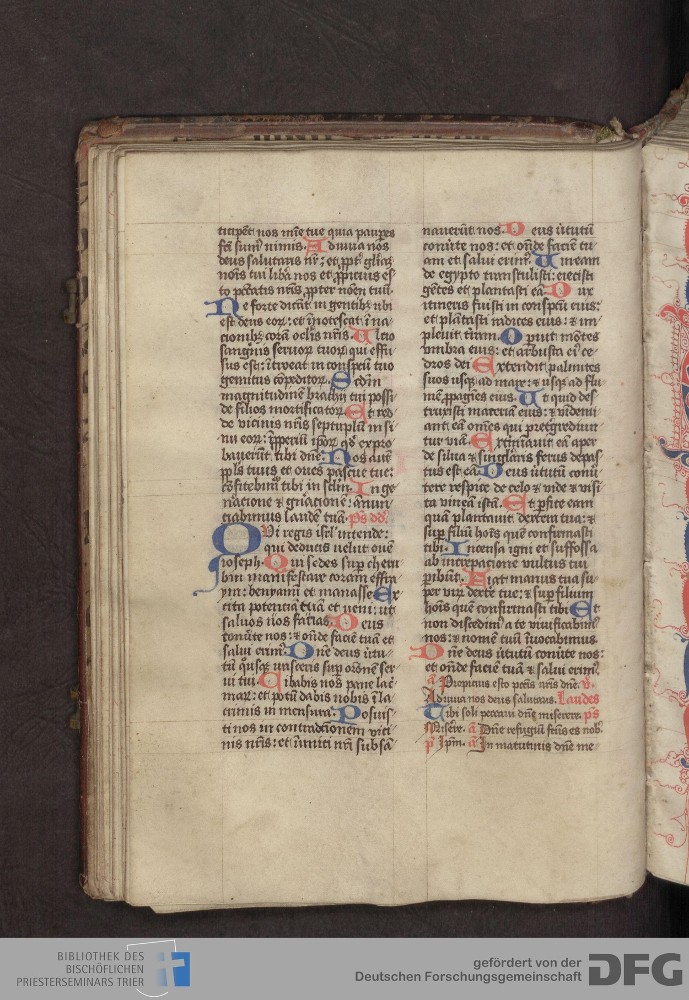 cicipe͞t nos mi͞e tue quia paup̱es
f͞ci sum᷒ nimis. Adiuua nos
deus salutaris n͞r: et ꝓpt͛ gl͞iaȝ
no͞is tui lib͛a nos et ꝓpicius es
to p͞ctatis n͞ris ꝓpter nom͞e tuu͞.
Ne forte dica͞t in gentibȝ ubi
est deus eoꝝ: et i͞notescat i͞ na
cionibȝ cora͞ oc͞lis n͞ris. Ultio
sanguis seruoꝝ tuoꝝ qui effu
sus est: i͞troeat in conspc͞u tuo
gemitus co͞peditoꝝ. Sc͞dm
magnitudine͞ brachii tui possi
de filios mortificatoꝝ. Et red
de vicinis n͞ris septuplu͞ in si
nu eoꝝ: i͞pꝓeriu͞ ip͞oꝝ qd͛ expro
bauer͞ut tibi dn͞e. Nos aut͞e
pp͞ls tuus et oues pascue tue:
co͞fitebim᷒ tibi in sc͞lm. In ge
n͛acione & gn͛acione͞: anun
ciabimus laude͞ tua͞. ps dd͛.
Qui regis isr͞l intende:
qui deducis uelut oue͞
ioseph. Qui sedes sup͛ cheru
bin manifestare coram effra
ym: beniami͞ et manasse. Ex
cita potencia͞ tua͞ et ueni: ut
saluos nos facias. Deus
conu͛te nos: & on͞de facie͞ tua͞ et
salui erim᷒. Dn͞e deus u͛tu
tu͞ qu͛sqȝ irasceris sup͛ orͦone͞ ser
ui tui. Cibabis nos pane lac͛
maꝝ: et potu͞ dabis nobis i͞ la
crimis in mensura. Posuis
ti nos in contradictionem vici
nis n͞ris: et inimici n͞ri subsa͞
nauerut nos. Deus u͛tutu͞
conu͛te nos: et on͞de facie͞ tu
am et salui erim᷒. Uineam
de egypto transtulisti: eiecisti
ge͞tes et plantasti ea͞. Dux
itineris fuisti in conspc͞u eius:
et pla͞tasti radices eius: & im
pleuit t͛ram. Oꝑuit mo͞tes
vmbra eius: et arbusta ei᷒ ce
dros dei. Extendit palmites
suos usqȝ ad mare: & usqȝ ad flu
me͞ ꝓpagi͞es eius. Ut quid des
truxisti maceria͞ eius: & vi͞demi
ant ea͞ om͞es qui pret͛grediun
tur via͞. Ext͛mi͞auit ea͞ aper
de silua & singl͛aris ferus depas
tus est ea͞. Deus u͛tutu͞ conu͛
tere respice de celo & vide & visi
ta vinea͞ ista͞. Et ꝑfice eam
qua͞ plantauit dext͛a tua: &
sup͛ filiu͞ ho͞is que͞ confirmasti
tibi. Incensa igni et suffossa
ab increpacione vultus tui
ꝑibu͞t. Fiat manus tua su
per vir͛ dext͛e tue: & sup͛ filium
ho͞is que͞ confirmasti tibi. Et
non discedim᷒ a te viuificabis
nos: & nome͞ tuu͞ i͞uocabimus
Dn͞e deus u͛tutu͞ conu͛te nos:
et on͞de facie͞ tua͞ & salui erim᷒.
a͞ Propicius esto pc͞tis n͞ris dn͞e. v.
Adiuua nos deus salutaris. Laudes
Tibi soli peccaui dn͞e miserere. ps
Mise͛re. a͞ Dn͞e refugiu͞ fc͞us es nob͛.
p͛ Ip͞m. a͞ In matutinis dn͞e me
BIBLIOTHEK DES
BISCHÖFLICHEN
PRIESTERSEMINARS TRIER
gefördert von der
Deutschen Forschungsgemeinschaft
DFG